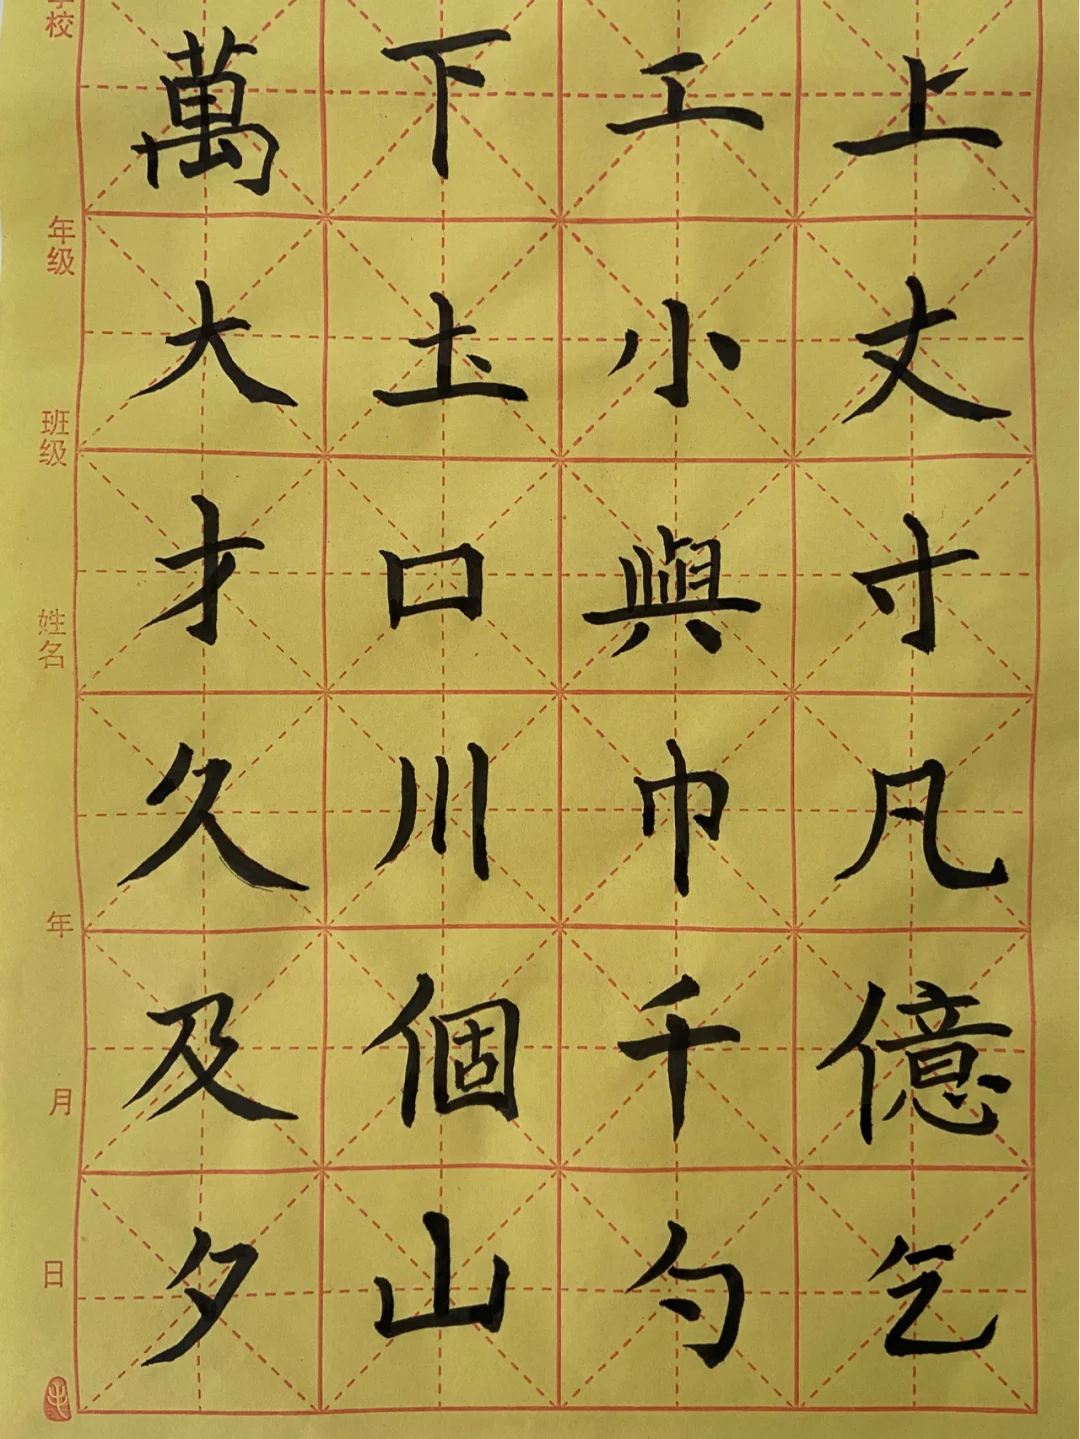 上丈寸凡億乞
工小與巾千勺
下圡口川個山
萬大才久及夕
校
年级
班级
姓名
年
月
日